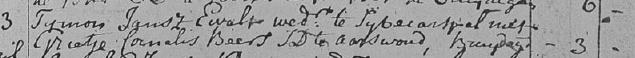 3 Tymon Jansz Ewalt wedr. te Sybecarspel met 6 -
Grietje Cornelis Beers JD te Aartswoud, - 3 -